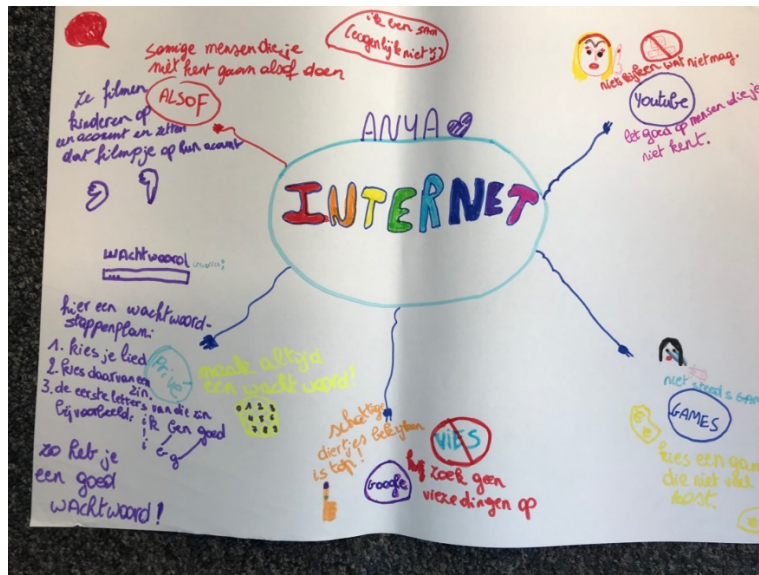 ik ben SAM
(eogenlijk niet
somige mensen die je
niet kent gaan alsof doen
ALSOF
ze filmen
kinderen op
een acount en zetten
dat filmpje op hun acount
ANYA
INTERNET
niet kijken wat niet mag.
Youtube
let goed op mensen die je
niet kent.
wachtwoord
hier een wachtwoord-
stappenplan:
1. kies je lied
2. kies daarvan een
zin.
3. de eerste letters van die zin
bijvoorbeeld: ik ben goed
zo heb je
een goed
wachtwoord!
Privé
maak altijd
een wachtwoord!
1 2 3
schattige
diertjes bekijken
is top!
Google
ViES
zoek geen
vieze dingen op
niet steeds GAM
GAMES
kies een gam
die niet
kost.